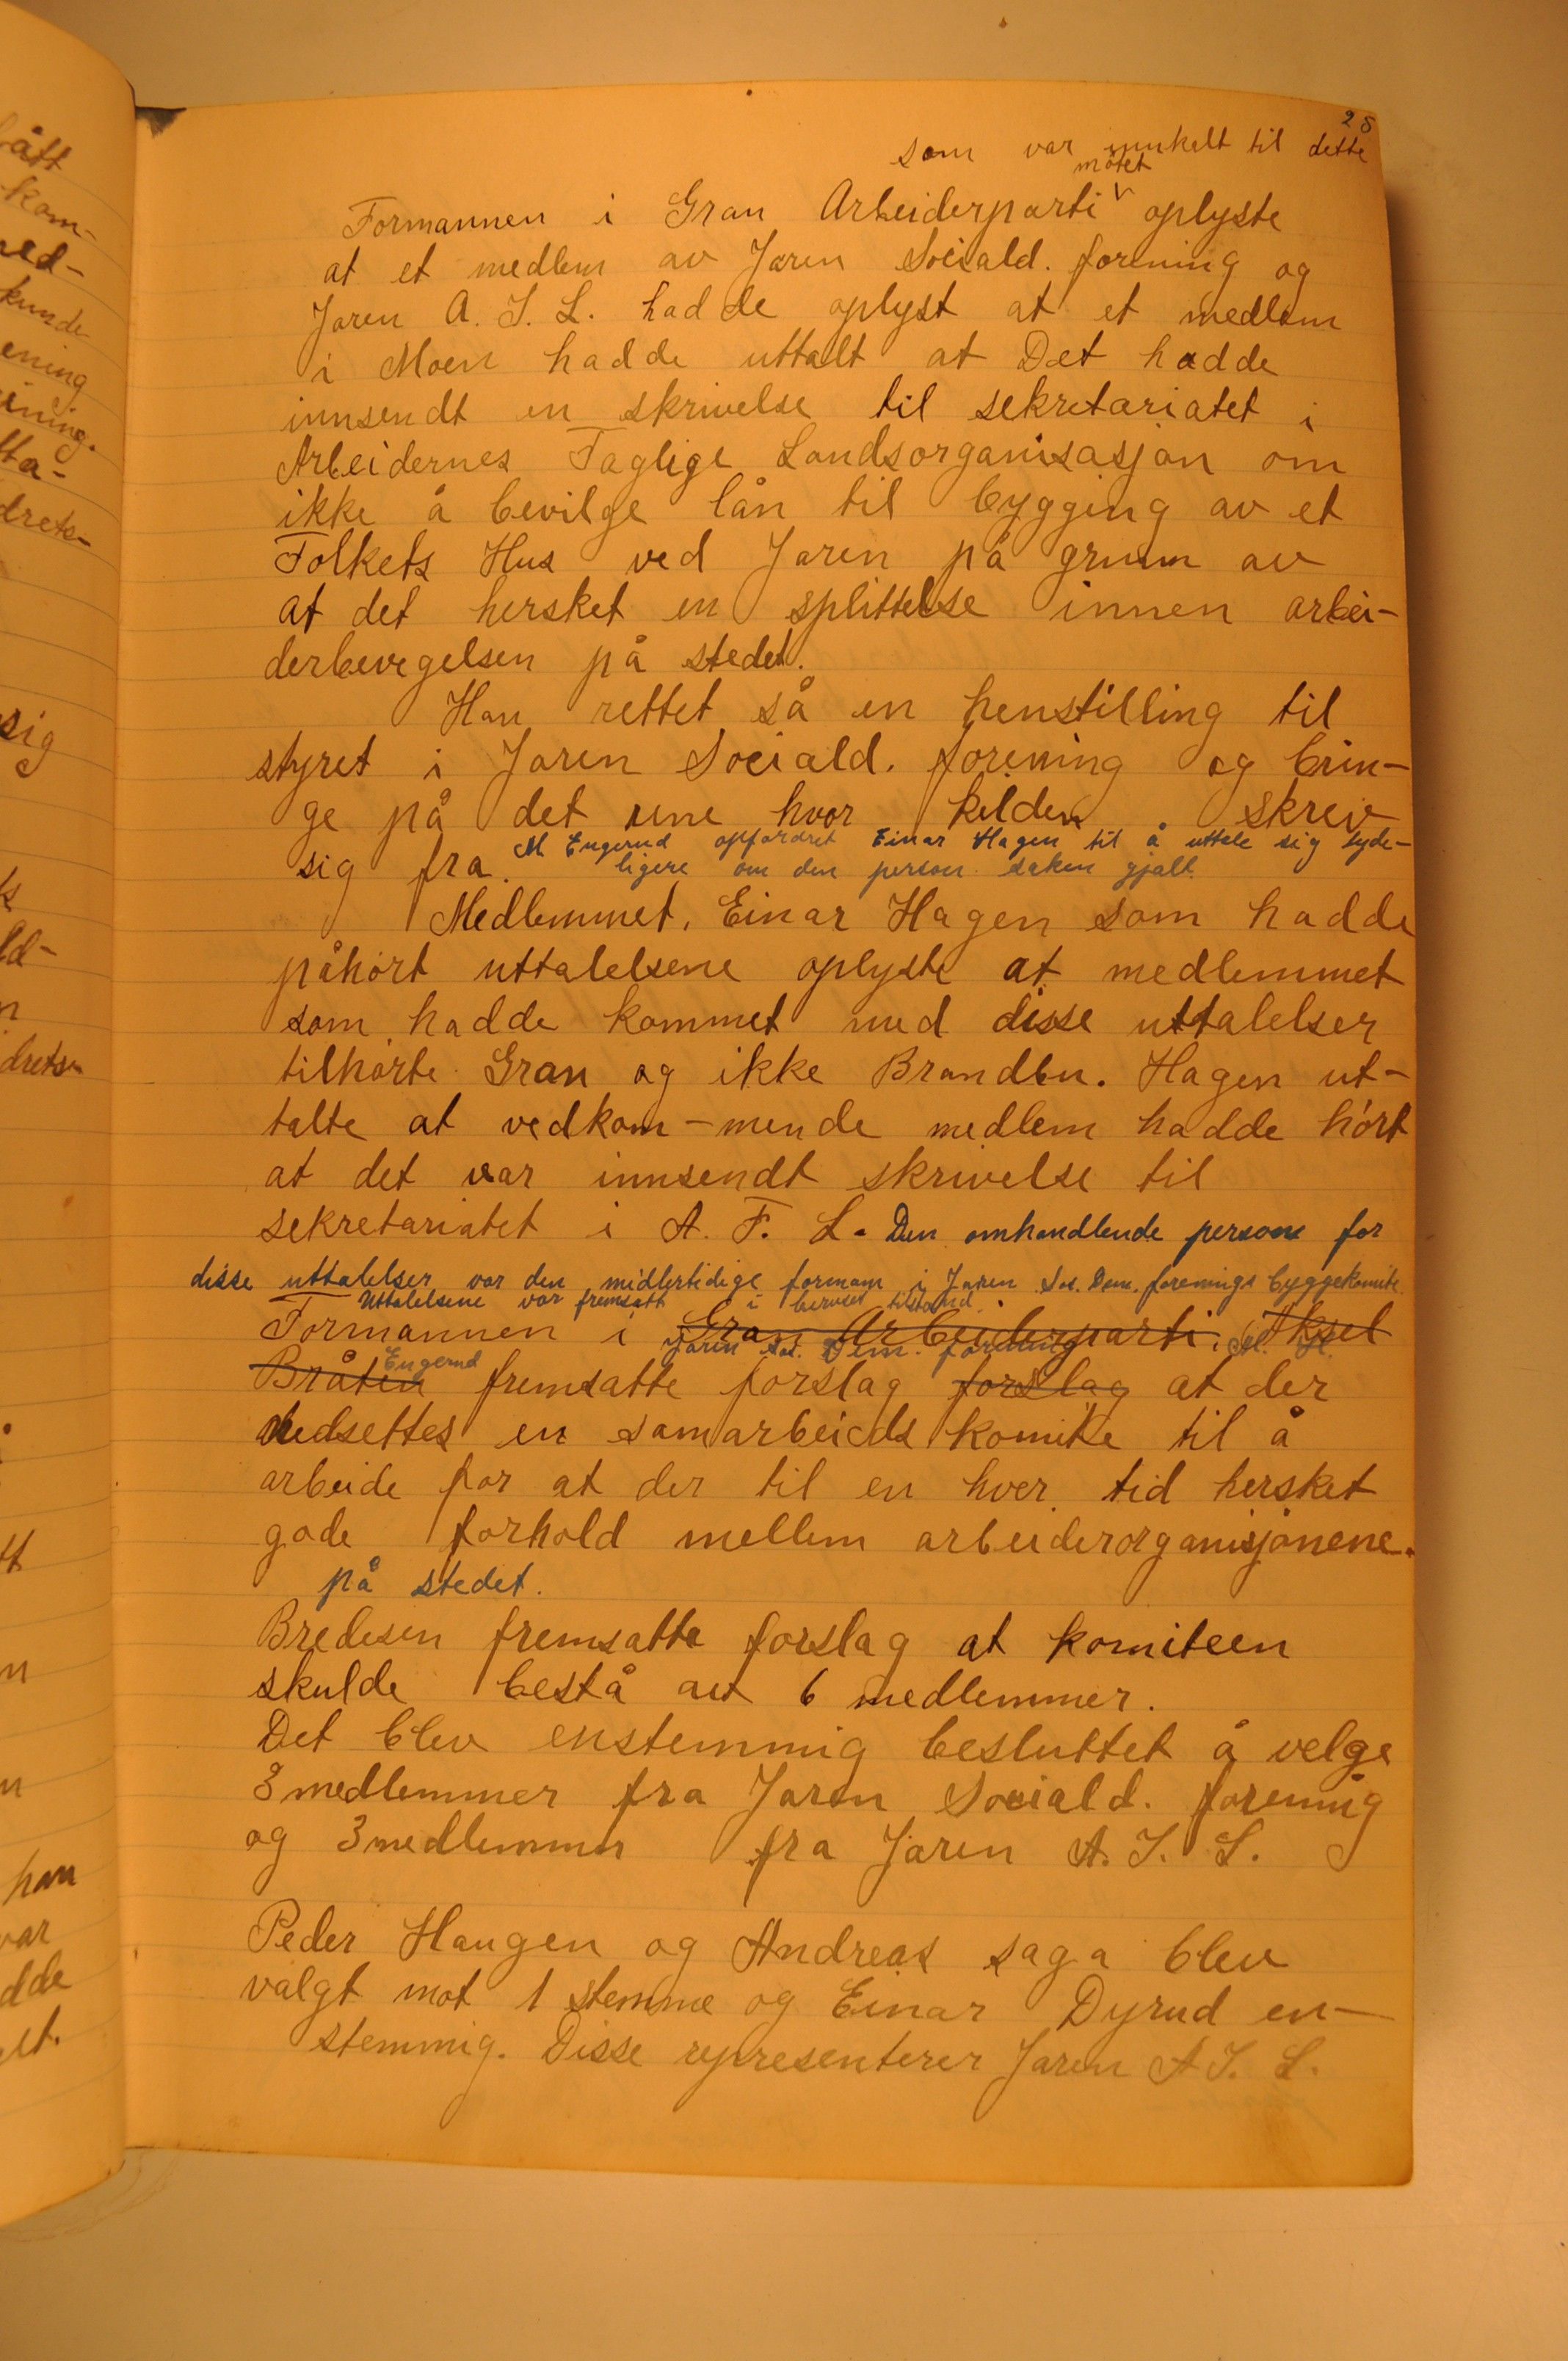 28
som var innkelt til dette
møtet
Formannen i Gran Arbeiderparti oplyste
at et medlem av Jaren Sociald. forening og
Jaren A. I. L. hadde oplyst at et medlem
i Moen hadde uttalt at Det hadde
innsendt en skrivelse til sekretariatet i
Arbeidernes Faglige Landsorganisasjon om
ikke å bevilge lån til bygging av et
Folkets Hus ved Jaren på grunn av
at det hersket en splittelse innen arbei-
derbevegelsen på stedet.
Han rettet så en henstilling til
styret i Jaren Sociald. forening og brin-
ge på det rene hvor kilden skrev
sig fra. M Engerud opfordret Einar Hagen til å uttale sig tyde-
ligere om den person saken gjalt.
Medlemmet, Einar Hagen som hadde
påhørt uttalelsene oplyste at medlemmet
som hadde kommet med disse uttalelser
tilhørte Gran og ikke Brandbu. Hagen ut-
talte at vedkom-mende medlem hadde hørt
at det var innsendt skrivelse til
sekretariatet i A. F. L. Den omhandlende person for
disse uttalelser var den midlertidige formann i Jaren Sos. Dem. forenings byggekomite.
Uttalelsene var fremsatt i beruset tilstand.
Formannen i Gran Arbeiderparti, Aksel
Jaren Sos. Dem. forening M. H.
Bråten Engerud fremsatte forslag forslag at der
nedsettes en samarbeids komite til å
arbeide for at der til en hver tid hersket
gode forhold mellem arbeiderorganisjonene.
på stedet.
Bredesen fremsatte forslag at komiteen
skulde bestå av 6 medlemmer.
Det blev enstemmig besluttet å velge
3 medlemmer fra Jaren Sociald. forening
og 3 medlemmer fra Jaren A. I. L.
Peder Haugen og Andreas saga blev
valgt mot 1 stemme og Einar Dyrud en-
stemmig. Disse representerer Jaren A I. L.